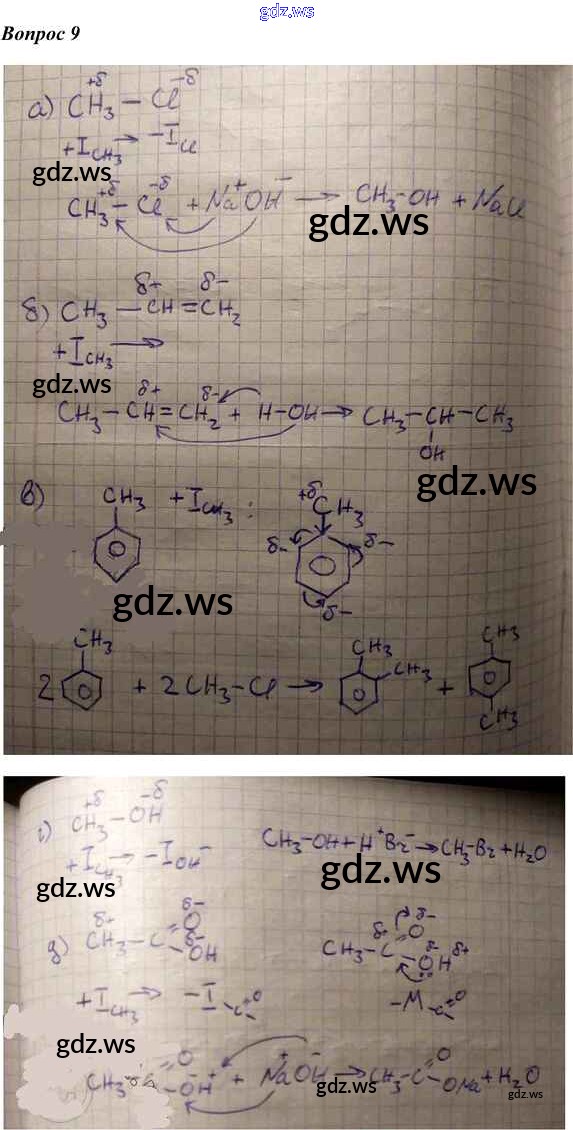 gdz.ws
Вопрос 9
а) CH₃ – Cl
+δ –δ
+I CH₃ → –I Cl
gdz.ws
CH₃ – Cl + Na⁺OH⁻ → CH₃–OH + NaCl
+δ –δ
gdz.ws
δ+ δ–
б) CH₃ – CH = CH₂
+I CH₃ →
gdz.ws
δ+ δ–
CH₃ – CH = CH₂ + H–OH → CH₃–CH–CH₃
OH
gdz.ws
в) CH₃ +I CH₃ : +δ CH₃
δ– δ–
gdz.ws
δ–
CH₃ CH₃ CH₃
2 + 2CH₃–Cl → CH₃ +
CH₃
+δ –δ
г) CH₃ – OH
CH₃–OH + H⁺Br⁻ → CH₃–Br + H₂O
+I CH₃ → –I OH⁻
gdz.ws gdz.ws
δ+ δ– δ–
д) CH₃ – C =O –OH δ–
CH₃ – C =O –OH δ+ δ– δ+
+I CH₃ → –I C=O –M C=O
gdz.ws
CH₃ C =O –O⁻H⁺ + Na⁺OH⁻ → CH₃–C =O –ONa + H₂O
gdz.ws gdz.ws